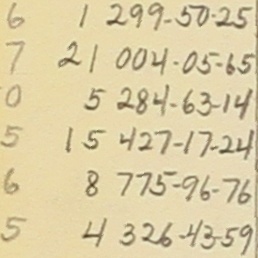 6 1 299-50-25
7 21 004-05-65
0 5 284-63-14
5 15 427-17-24
6 8 775-96-76
5 4 326-43-59